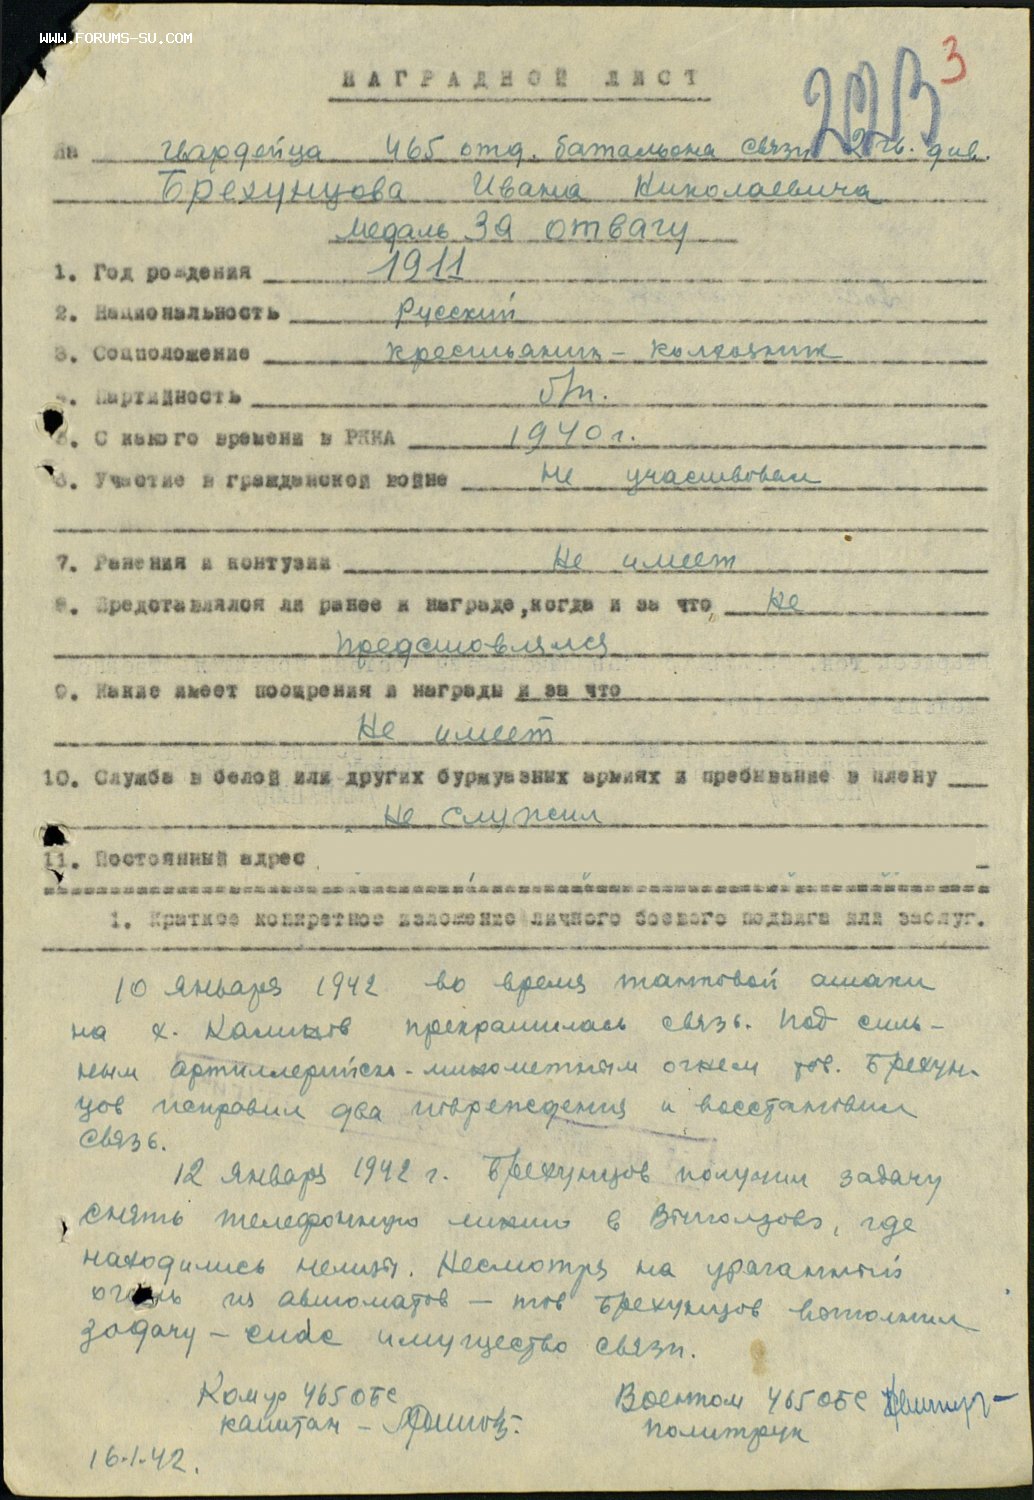 WWW.FORUMS-SU.COM
223 3
НАГРАДНОЙ ЛИСТ
на гвардейца 465 отд. батальона связи 2 гв. див.
Брехунцова Ивана Николаевича
медаль За отвагу
1. Год рождения 1911
2. Национальность Русский
3. Соцположение крестьянин - колхозник
4. Партийность б/п.
5. С какого времени в РККА 1940 г.
6. Участие в гражданской войне Не участвовал
7. Ранения и контузии Не имеет
8. Представлялся ли ранее к награде, когда и за что Не
представлялся
9. Какие имеет поощрения и награды и за что
Не имеет
10. Служба в белой или других буржуазных армиях и пребывание в плену
Не служил
11. Постоянный адрес
1. Краткое конкретное изложение личного боевого подвига или заслуг.
10 января 1942 во время танковой атаки
на х. прекратилась связь. Под силь-
ным артиллерийск.-минометным огнем тов. Брехун-
цов исправил два повреждения и восстановил
связь.
12 января 1942 г. Брехунцов получил задачу
снять телефонную линию в где
находились немцы. Несмотря на ураганный
огонь из автоматов - тов Брехунцов выполнил
задачу - спас имущество связи.
Комир 465 ОБС
капитан -
Военком 465 ОБС
политрук
16.1.42.